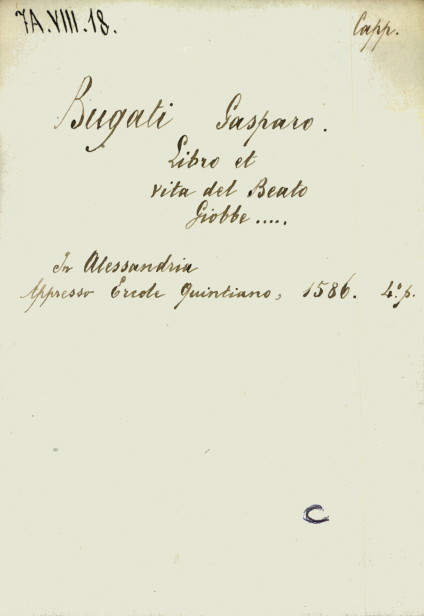 7A.VIII.18.
Capp.
Bugati Gasparo.
Libro et
vita del Beato
Giobbe .....
In Alessandria
Appresso Ercole Quintiano, 1586. 4.° p.
C